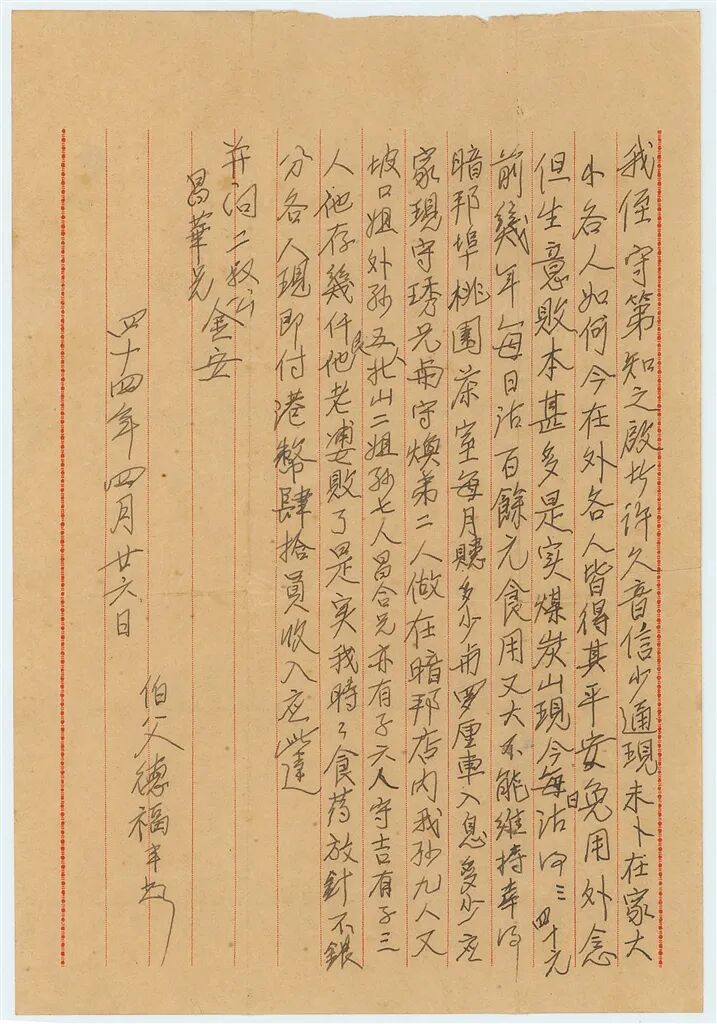 我侄守第知之啟者許久音信少通現未卜在家大
小各人如何今在外各人皆得其平安免用外念
但生意敗本甚多是实煤炭山現今每日沽得三四十元
前幾年每日沽百餘元食用又大不能維持幸得
暗邦埠桃園茶室每月賺多少兩罗厘車入息多少在
家現守琇兄兩守煥弟二人做在暗邦店内我孙九人又
坡口姐外孙五人北山二姐孙七人昌合兄亦有子六人守吉有子三
人他存幾仟他老婆敗了是实我時々食药放針不銀
分各人現即付港幣肆拾員收入在此達
并问二叔公金安
昌華兄
四十四年四月廿六日
伯父德福字